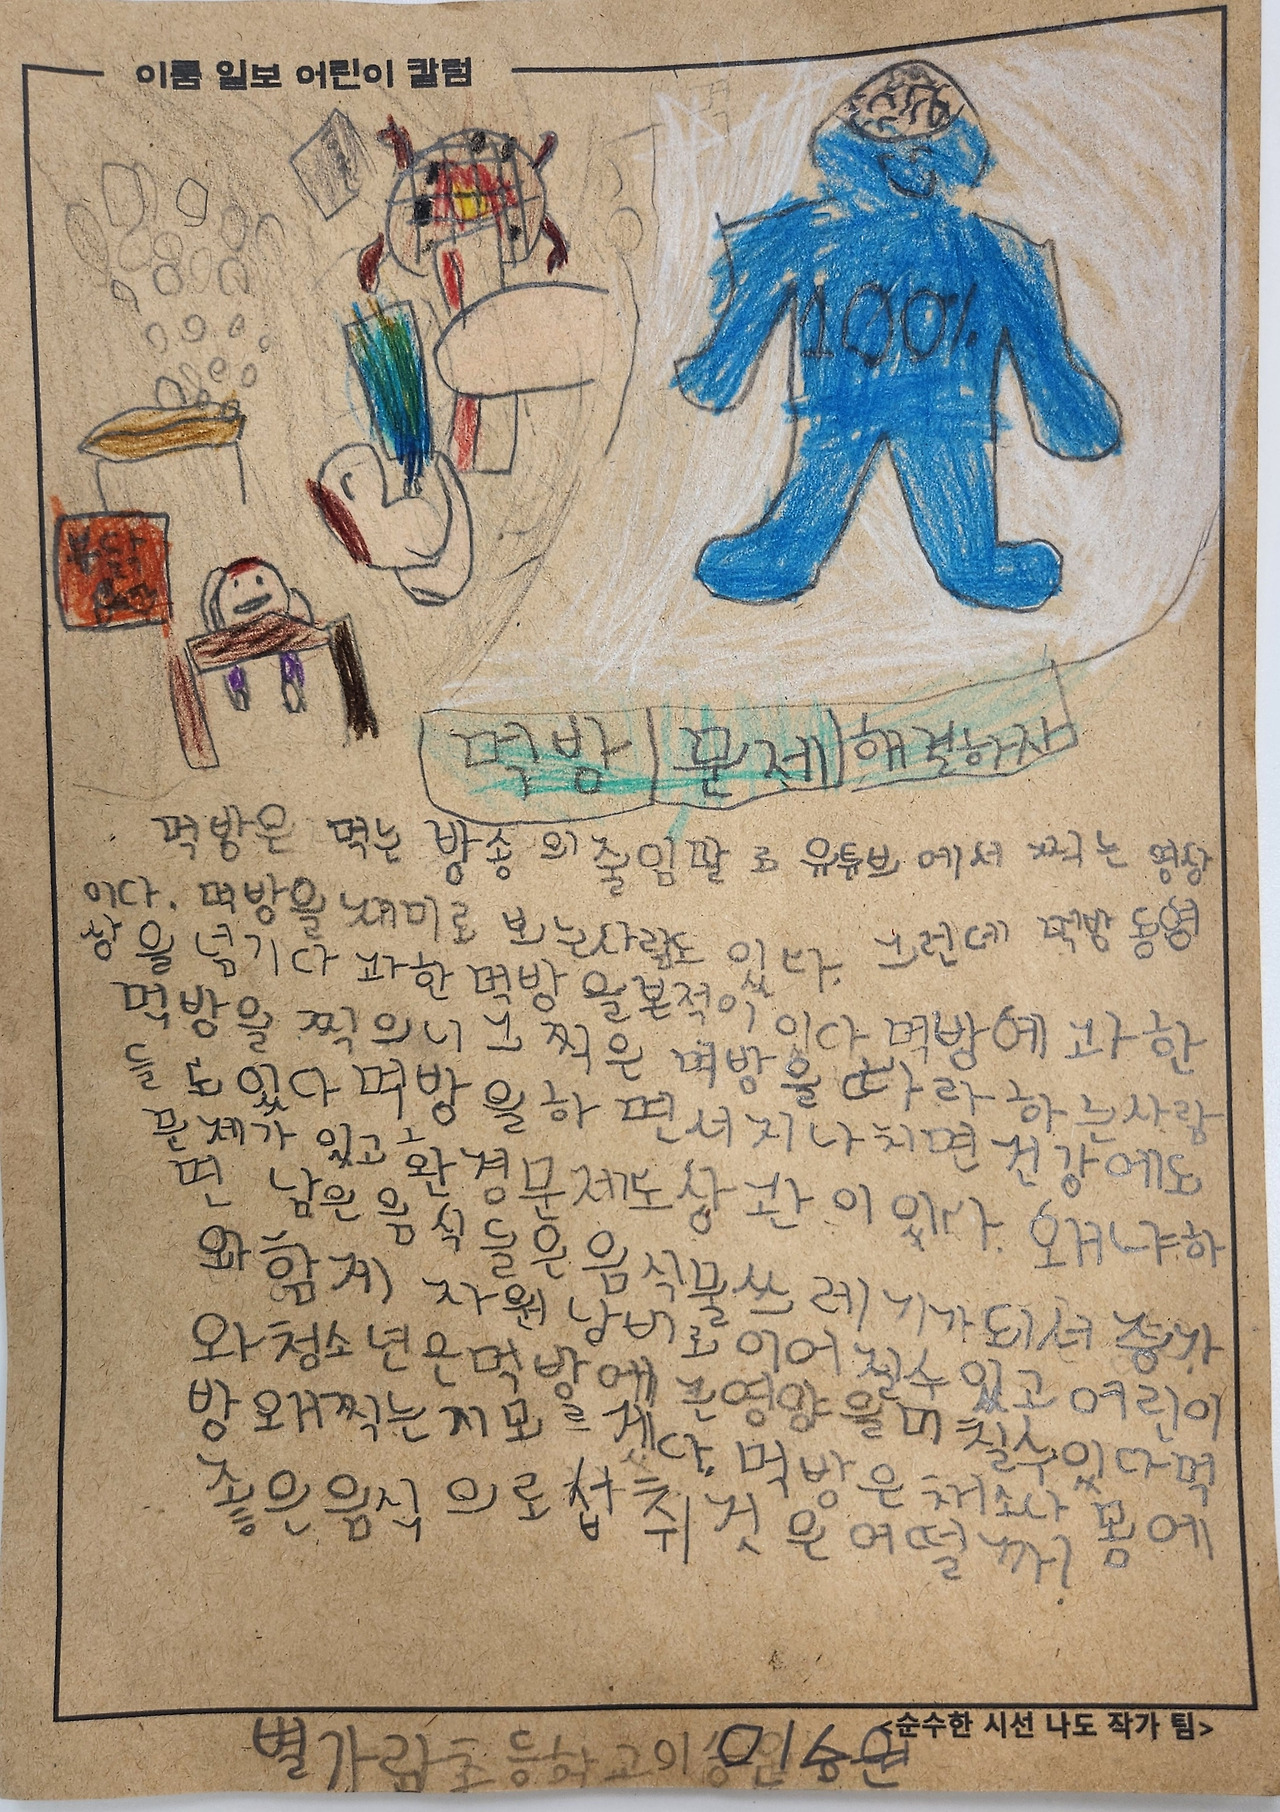 이룸 일보 어린이 칼럼
100%
불닭
먹방 문제 해결하자
먹방은 먹는 방송 의 줄임말 로 유튜브 에서 찍는 영상
이다. 먹방을 재미로 보는사람도 있다. 그런데 먹방 동영
상 을 넘기다 과한 먹방 을본적이 있다 먹방에 과한
먹방을 찍으니 그 찍은 먹방을 따라 하는사람
들 도 있다 먹방 을하 면서 지나치면 건강에도
문제가 있고 환경문제도 상관 이 있다. 왜냐하
면 남은 음식 들은 음식물쓰 레기가 되서 증가
와 함께 자원 낭비로 이어 질수 있고 어린이
와 청소년은 먹방에 큰영양을 미 칠수있다 먹
방 왜찍는지모르겠다. 먹방은 채소나 몸에
좋은 음식 의로 섭취 것 은어떨까?
<순수한 시선 나도 작가 팀>
별가람초등학교 이승원